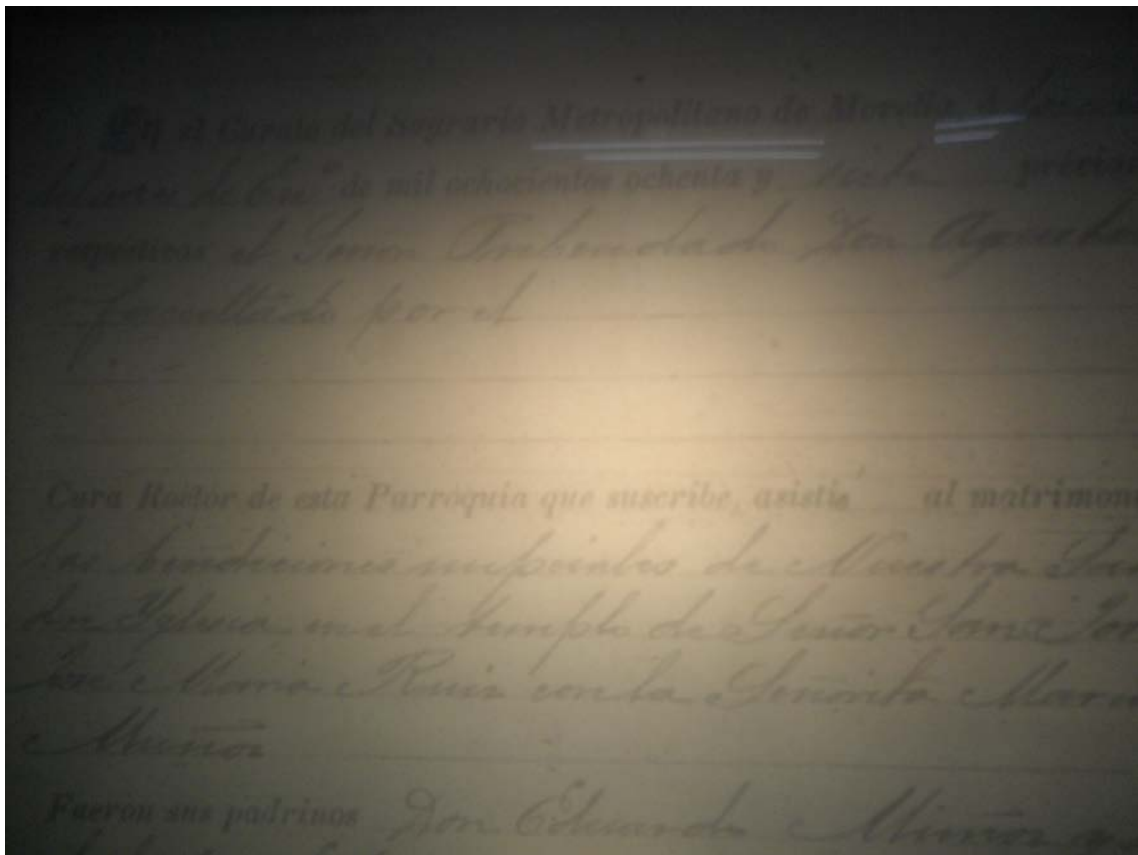 En el Curato del Sagrario Metropolitano de Morelia, á
de mil ochocientos ochenta y siete precisa
requisitos el Señor Prebendado Don
facultado por el
Cura Rector de esta Parroquia que suscribe, asistió al matrimon
las bendiciones nupciales de Nuestra
Yglesia en el templo de Señor San
José Maria Ruiz con la Señorita Mar
Muñoz
Fueron sus padrinos Don Eduardo Muñoz